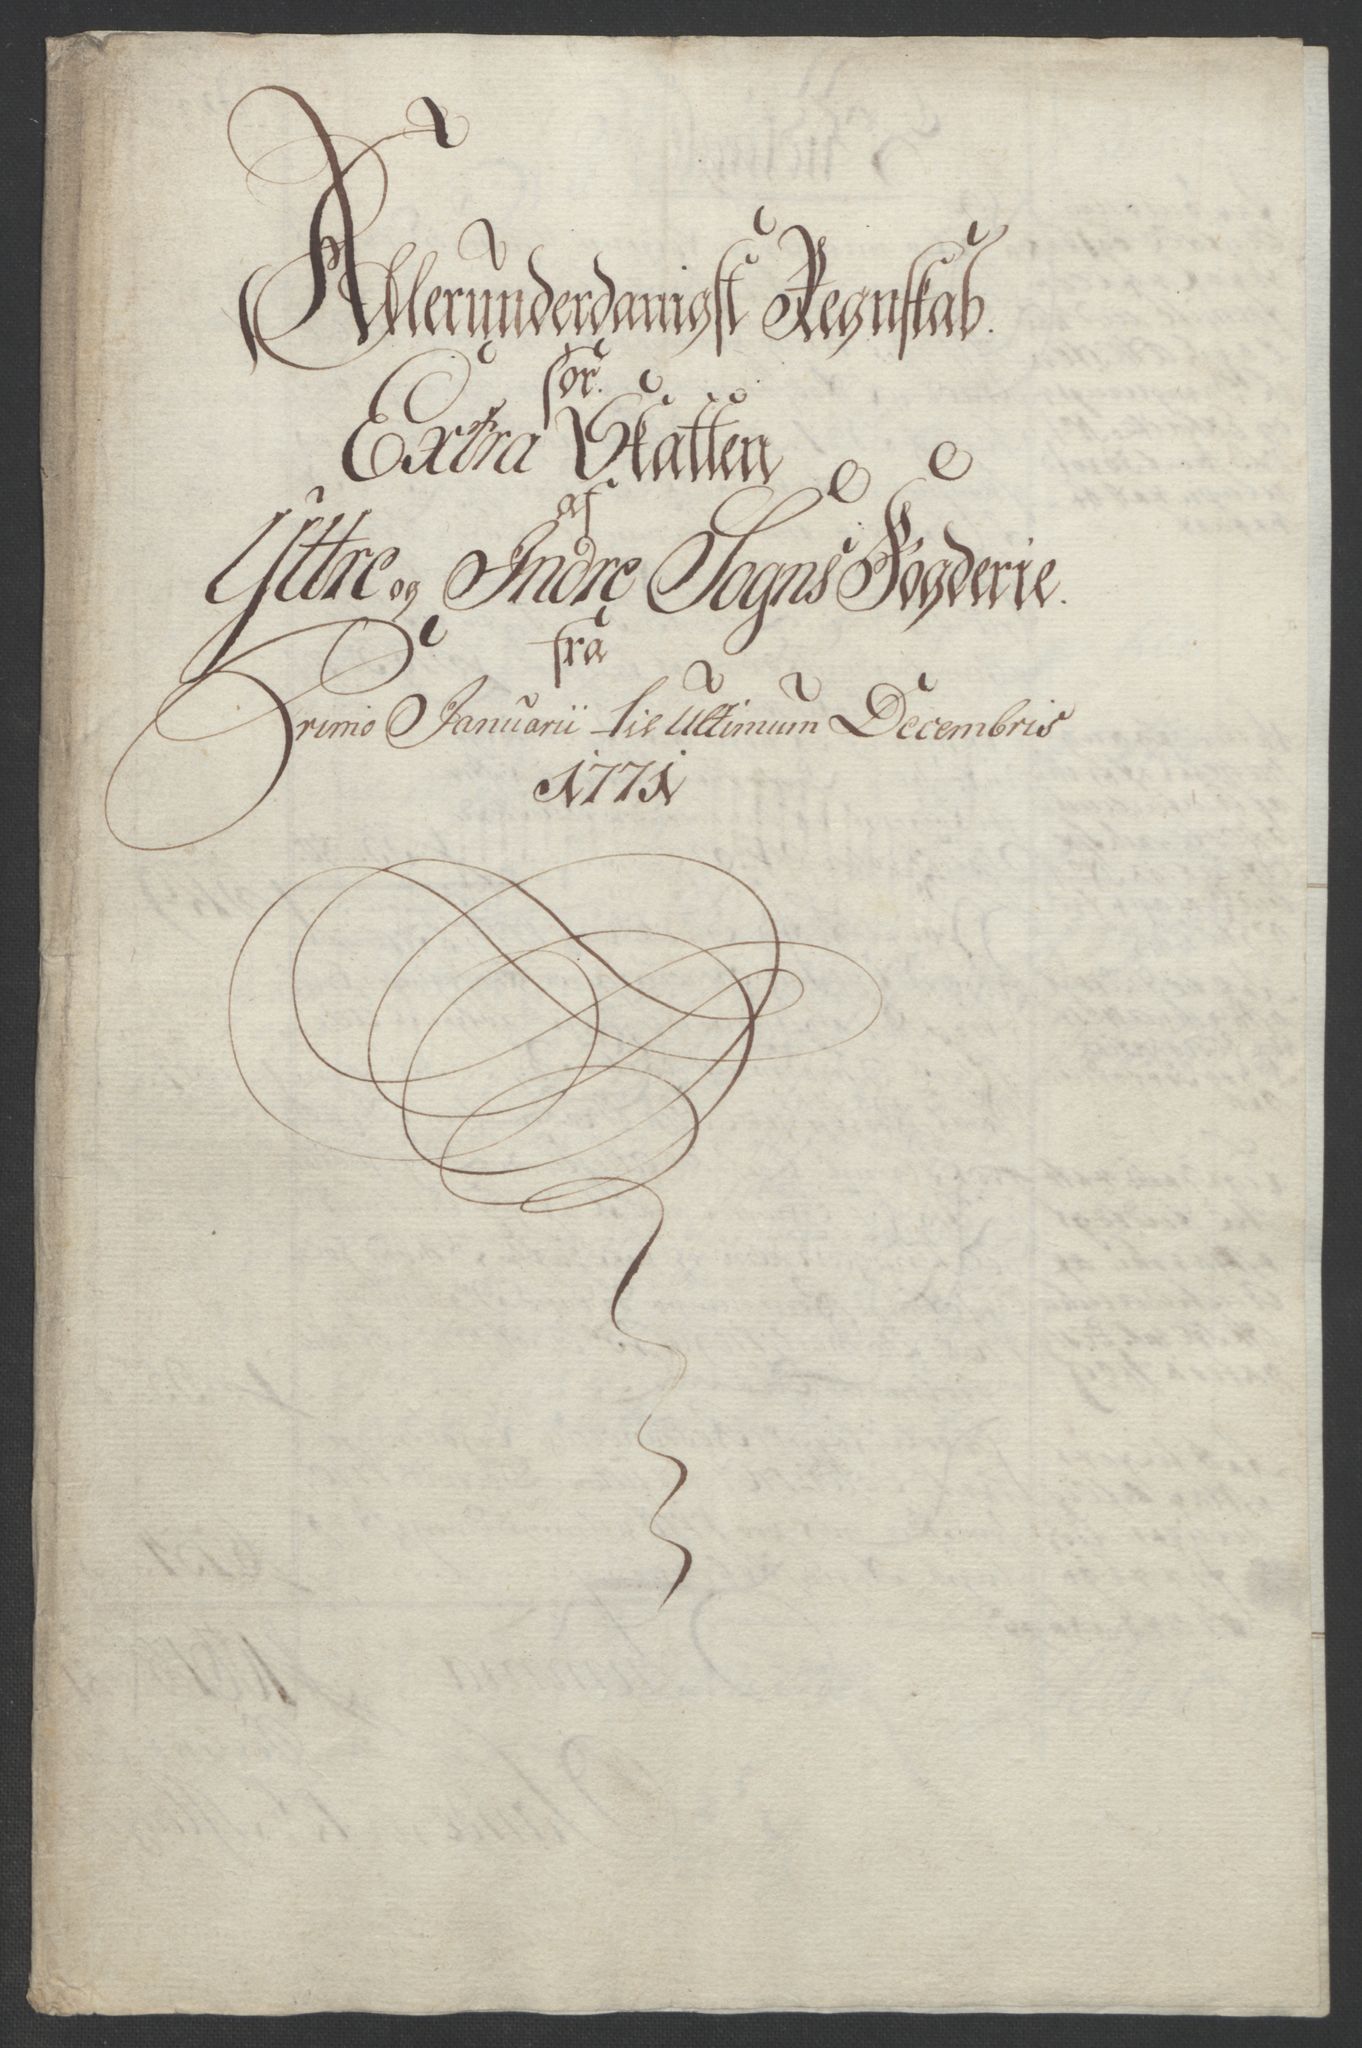 Allerunderdanigst Regnskab.
for
Extra Skatten
af
Yttre og Indre Sogns Fogderie.
fra
Primo Januarii til Ultimum Decembris
1771